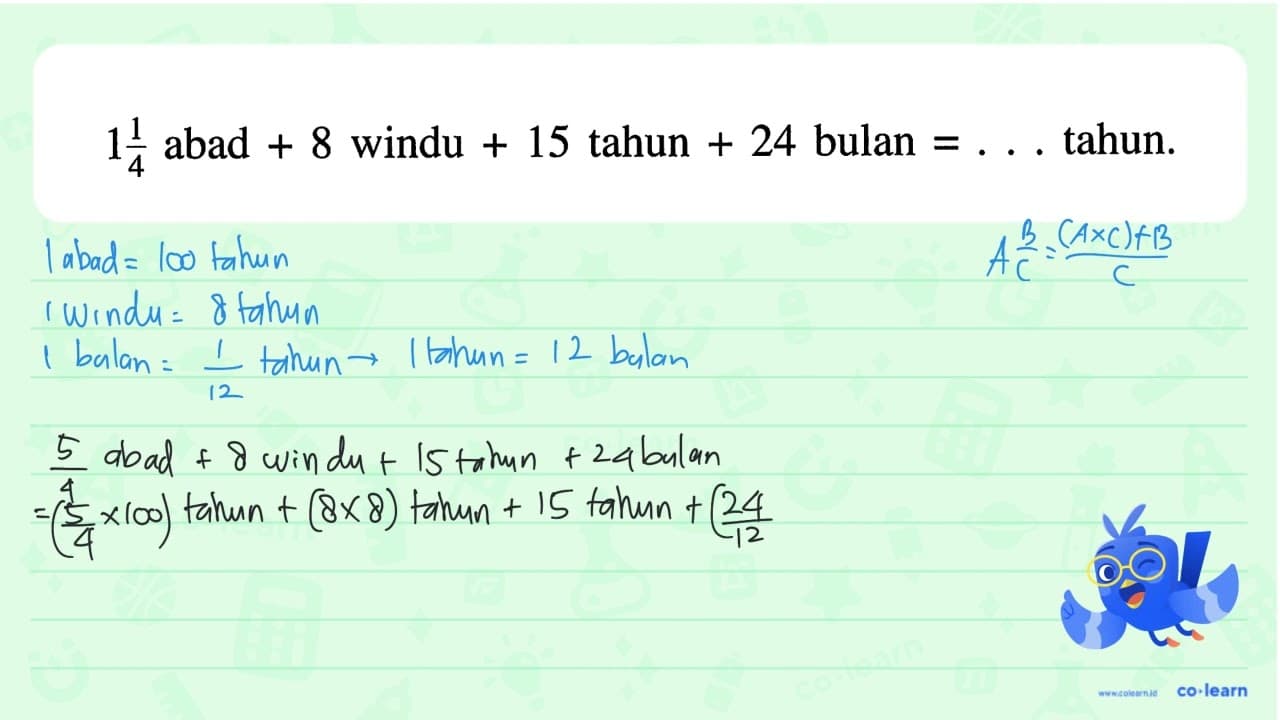 1 1/4 abad + 8 windu + 15 tahun + 24 bulan = . . . tahun.
1 abad = 100 tahun
A B/C = (A×C)+B / C
1 windu = 8 tahun
1 bulan = 1/12 tahun → 1 tahun = 12 bulan
5/4 abad + 8 windu + 15 tahun + 24 bulan
= (5/4 ×100) tahun + (8×8) tahun + 15 tahun + (24/12
www.colearn.id co·learn